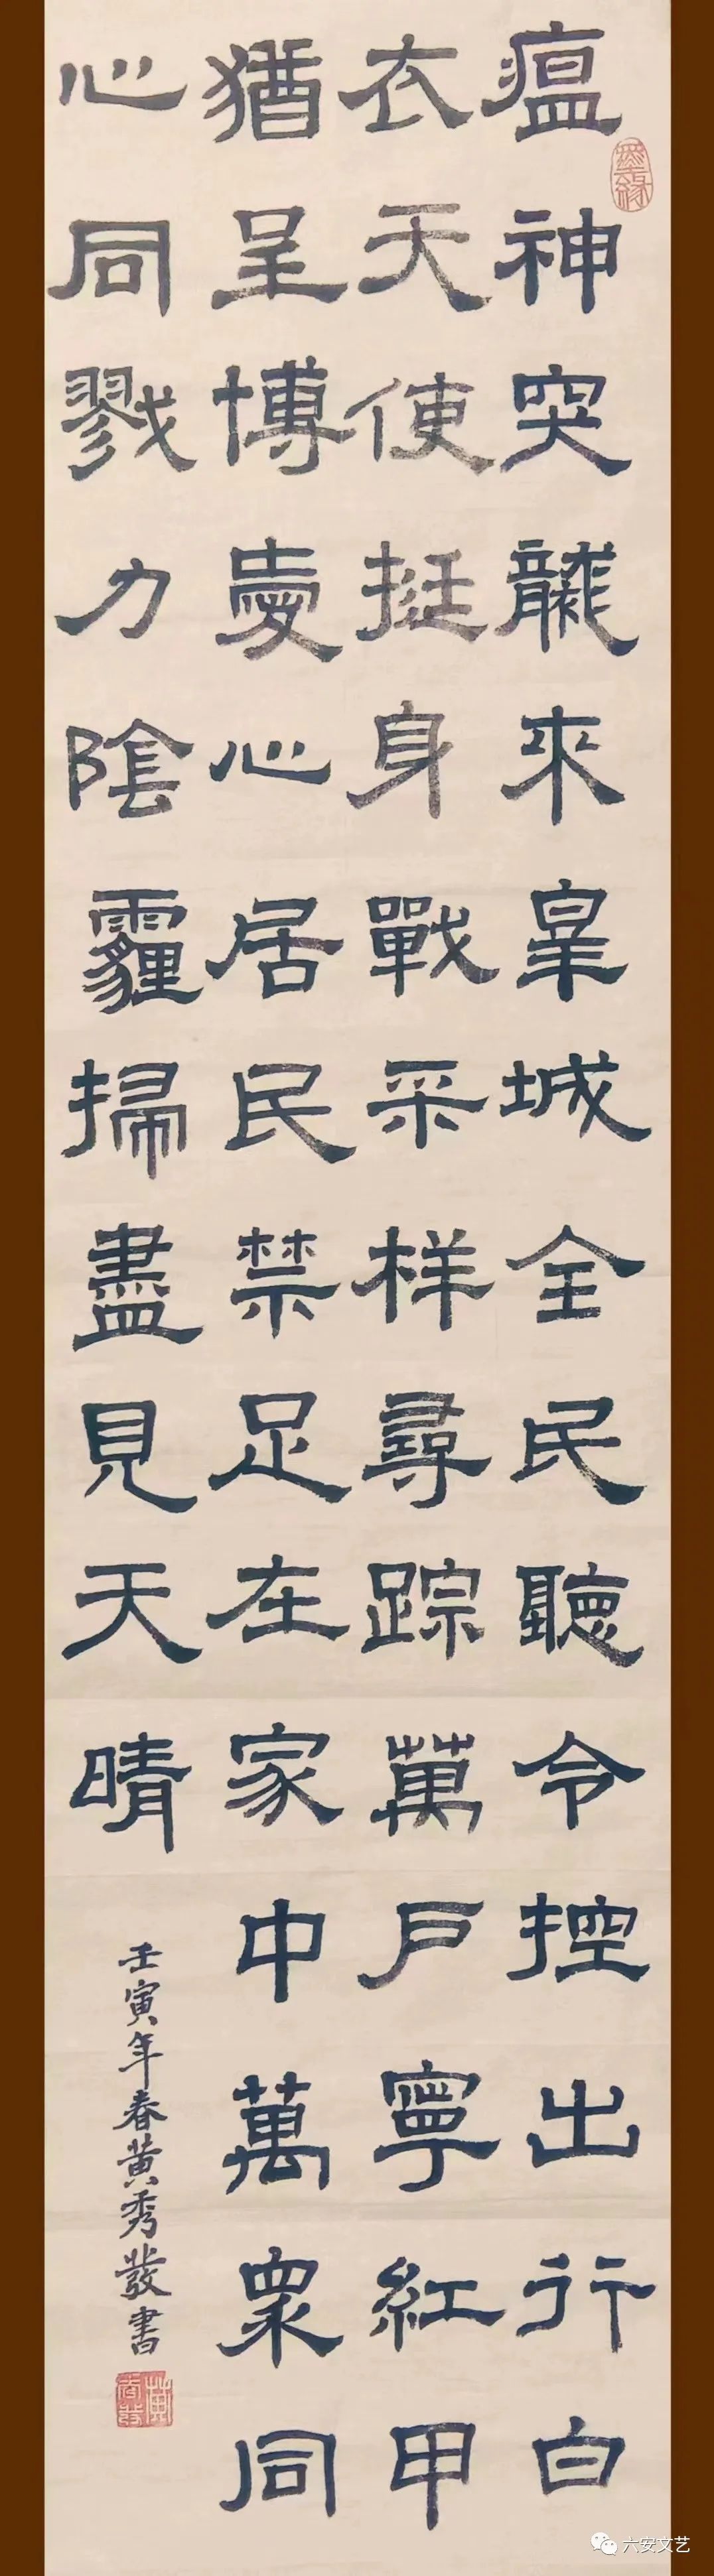 瘟神突襲來皐城全民聽令控出行白
衣天使挺身戰采样尋踪萬户寧紅甲
猶呈博愛心居民禁足在家中萬衆同
心同戮力陰霾掃盡見天晴
壬寅年春黄秀發書
墨緣
黄秀發
六安文艺